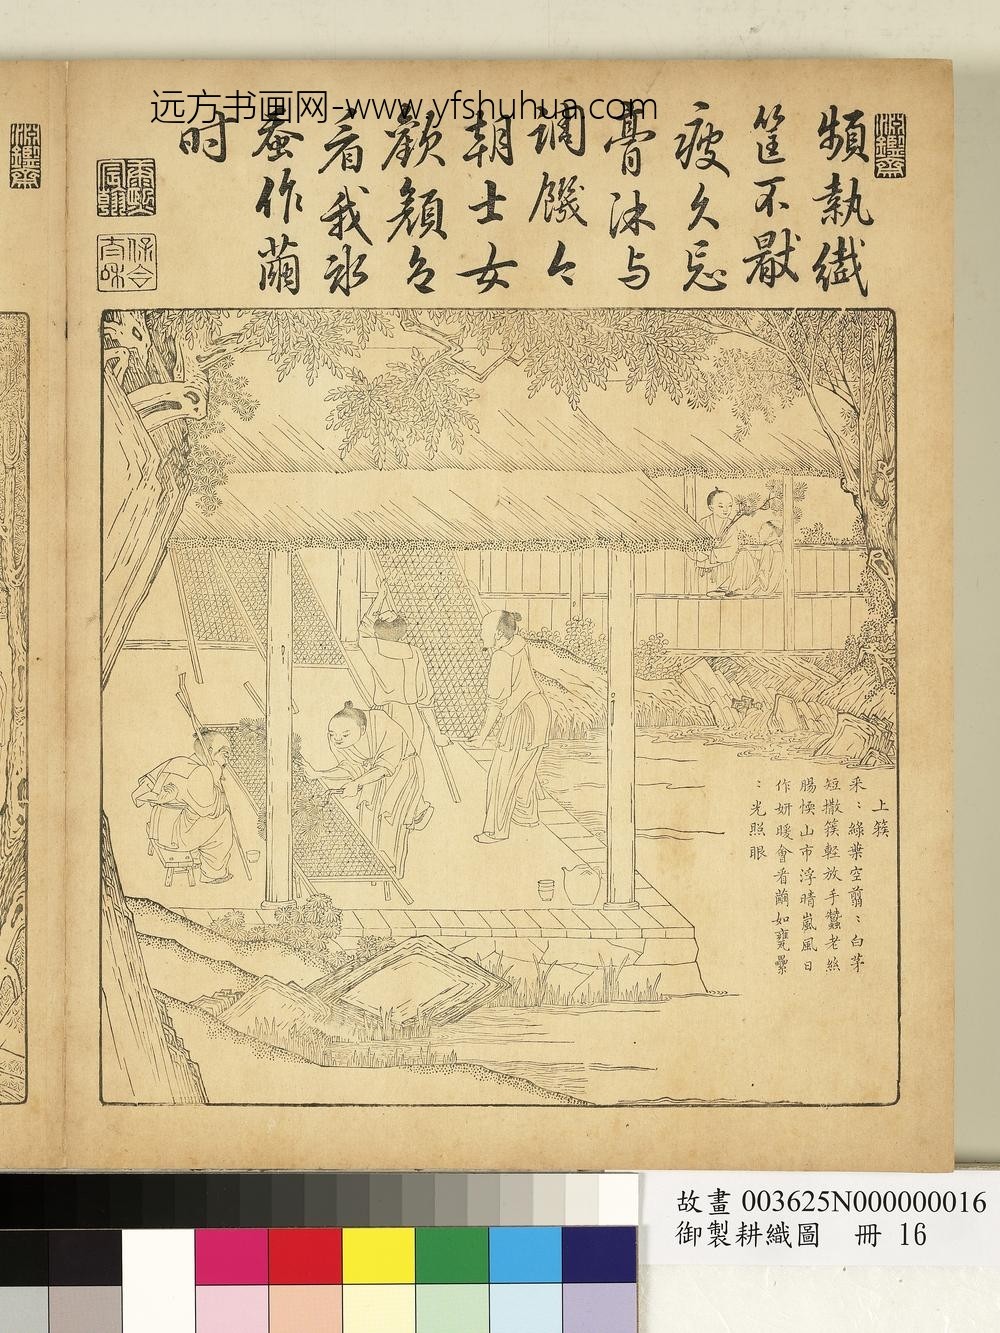 远方书画网-www.yfshuhua.com
頻執纖
筐不厭
疲久忘
膏沐与
調饑今
朝士女
歡顔色
看我冰
蚕作繭
时
上簇
采〻綠葉空翦〻白茅
短撒簇輕放手蠶老絲
腸愞山市浮晴嵐風日
作妍暖會看繭如甕罍
〻光照眼
故畫 003625N000000016
御製耕織圖 冊 16